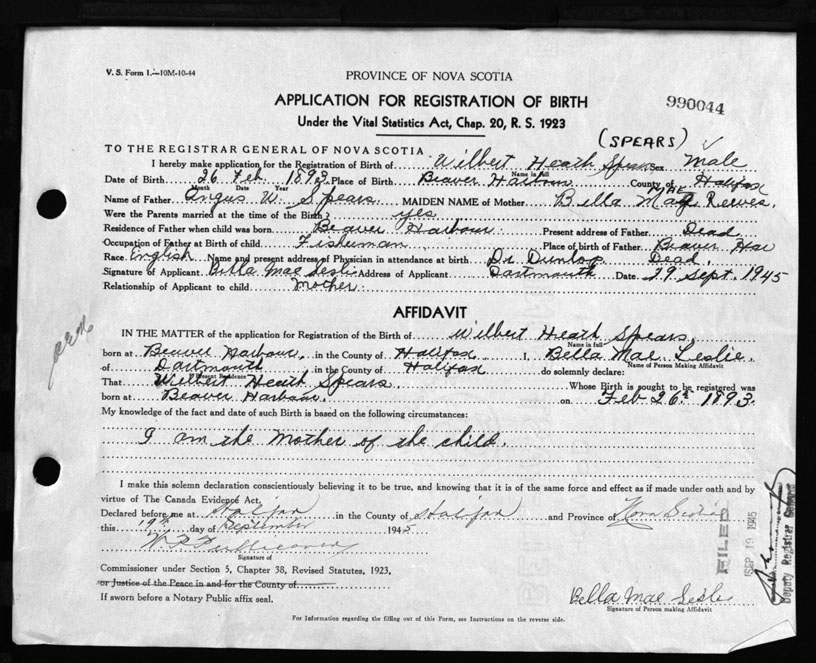 V. S. Form 1.—10M-10-44
PROVINCE OF NOVA SCOTIA
APPLICATION FOR REGISTRATION OF BIRTH
990044
Under the Vital Statistics Act, Chap. 20, R. S. 1923
(SPEARS)
TO THE REGISTRAR GENERAL OF NOVA SCOTIA
I hereby make application for the Registration of Birth of Wilbert Heath Spears Sex Male
Name in full
Date of Birth 26 Feb. 1893 Place of Birth Beaver Harbour County of Halifax
Month Date Year
Name of Father Angus W. Spears MAIDEN NAME of Mother Bella Mae Reeves.
Were the Parents married at the time of the Birth? yes
Residence of Father when child was born Beaver Harbour. Present address of Father Dead
Occupation of Father at Birth of child Fisherman Place of birth of Father Beaver Har
Race English Name and present address of Physician in attendance at birth Dr. Dunlop. Dead.
Signature of Applicant Bella Mae Leslie Address of Applicant Dartmouth Date 29 Sept. 1945
Relationship of Applicant to child Mother
AFFIDAVIT
IN THE MATTER of the application for Registration of the Birth of Wilbert Heath Spears
Name in full
born at Beaver Harbour. in the County of Halifax I, Bella Mae Leslie.
Name of Person Making Affidavit
of Dartmouth in the County of Halifax do solemnly declare:
Present Residence
That Wilbert Heath Spears Whose Birth is sought to be registered was
born at Beaver Harbour. on Feb 26th 1893.
My knowledge of the fact and date of such Birth is based on the following circumstances:
I am the Mother of the child.
I make this solemn declaration conscientiously believing it to be true, and knowing that it is of the same force and effect as if made under oath and by
virtue of The Canada Evidence Act.
Declared before me at Halifax in the County of Halifax and Province of Nova Scotia
this 19th day of September 1945
Signature of
Commissioner under Section 5, Chapter 38, Revised Statutes, 1923,
or Justice of the Peace in and for the County of
If sworn before a Notary Public affix seal.
Bella Mae Leslie
Signature of Person making Affidavit
For Information regarding the filling out of this Form, see Instructions on the reverse side.
FILED
SEP 19 1945
Deputy Registrar General